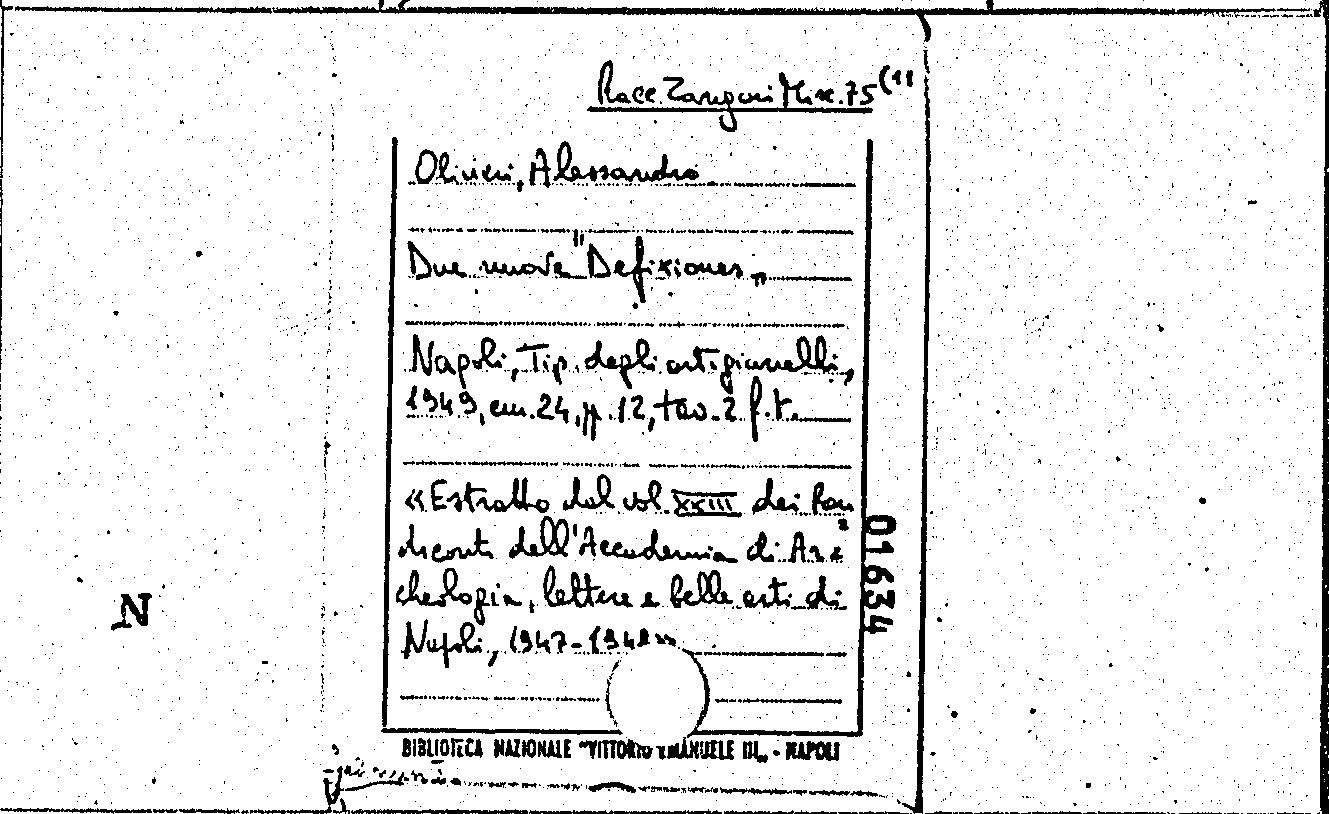 Racc. Zangari Misc. 75 (11
Olivieri, Alessandro
Due nuove "Defixiones„
Napoli, Tip. degli artigianelli,
1949, cm. 24, p. 12, tav. 2 f.t.
«Estratto dal vol XXIII dei Ren
diconti dell'Accademia di Ar=
cheologia, lettere e belle arti di
Napoli, 1947-1948»
01634
N
BIBLIOTECA NAZIONALE "VITTORIO EMANUELE III„ - NAPOLI